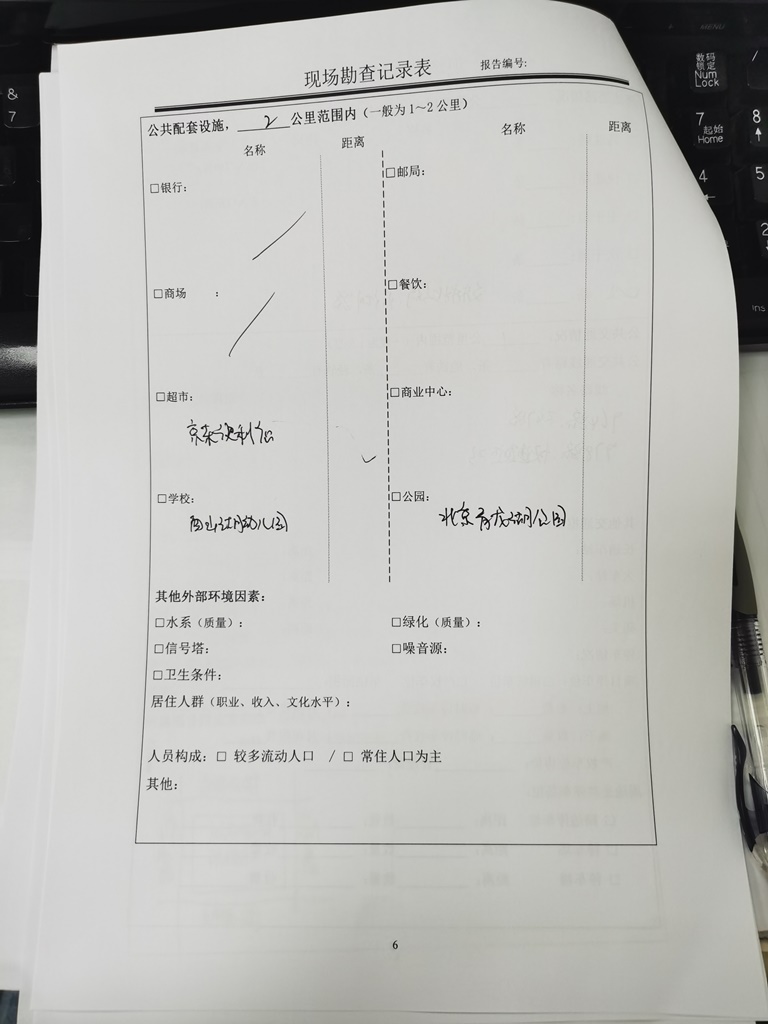 现场勘查记录表
报告编号:
公共配套设施，2公里范围内（一般为1～2公里）
名称 距离 名称 距离
□银行: □邮局:
□商场 : □餐饮:
□超市: □商业中心:
京东便利店
□学校: □公园:
西山湖幼儿园 北京青龙湖公园
其他外部环境因素:
□水系（质量）: □绿化（质量）:
□信号塔: □噪音源:
□卫生条件:
居住人群（职业、收入、文化水平）:
人员构成: □ 较多流动人口 / □ 常住人口为主
其他:
6
&
7
数码
锁定
Num
Lock
7 起始
Home
8
4
5
2